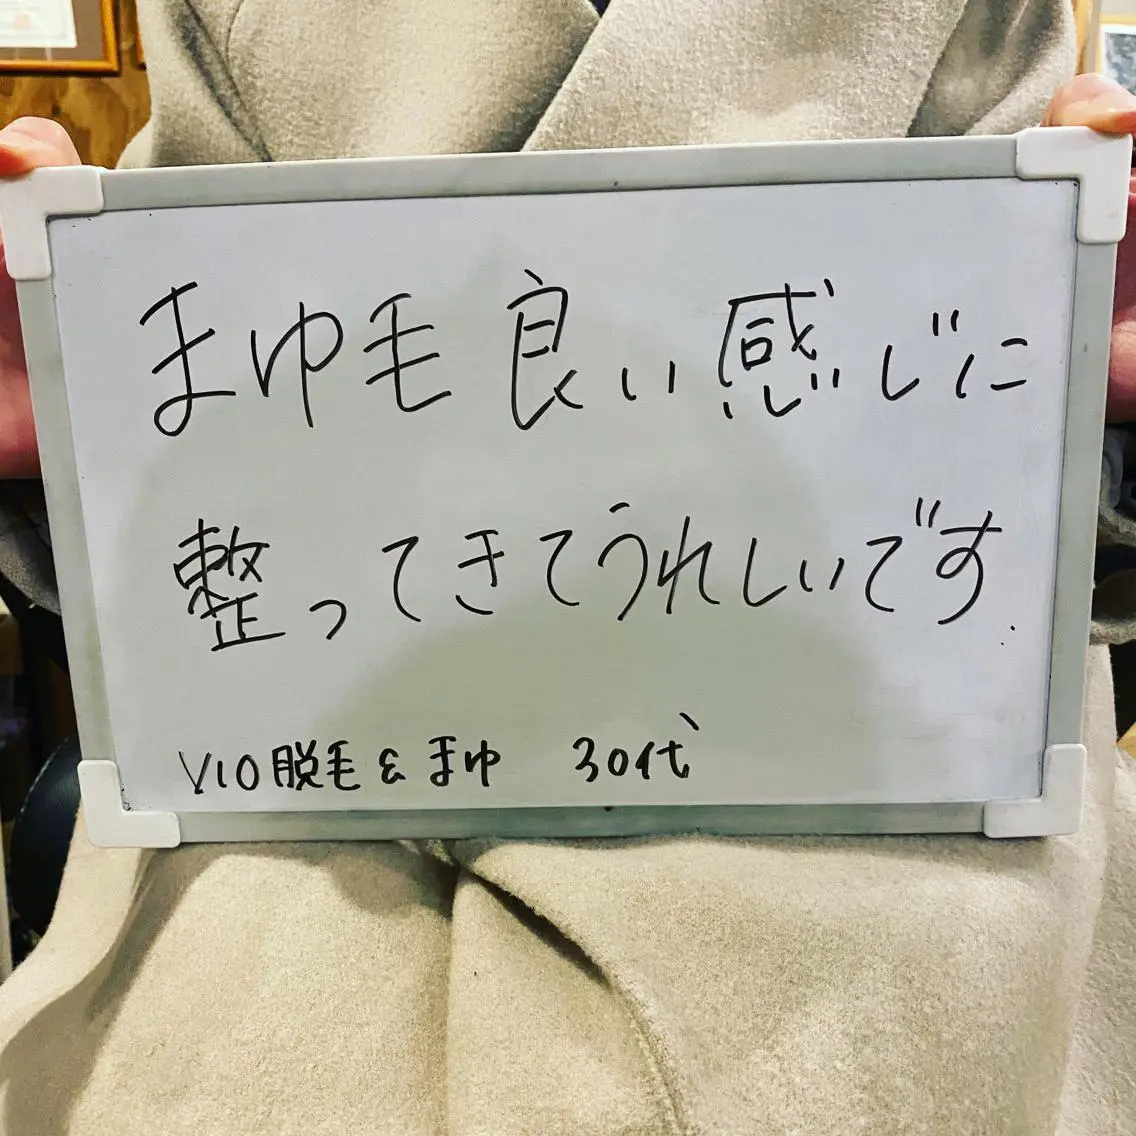 まゆ毛良い感じに
整ってきてうれしいです.
VIO脱毛&まゆ 30代